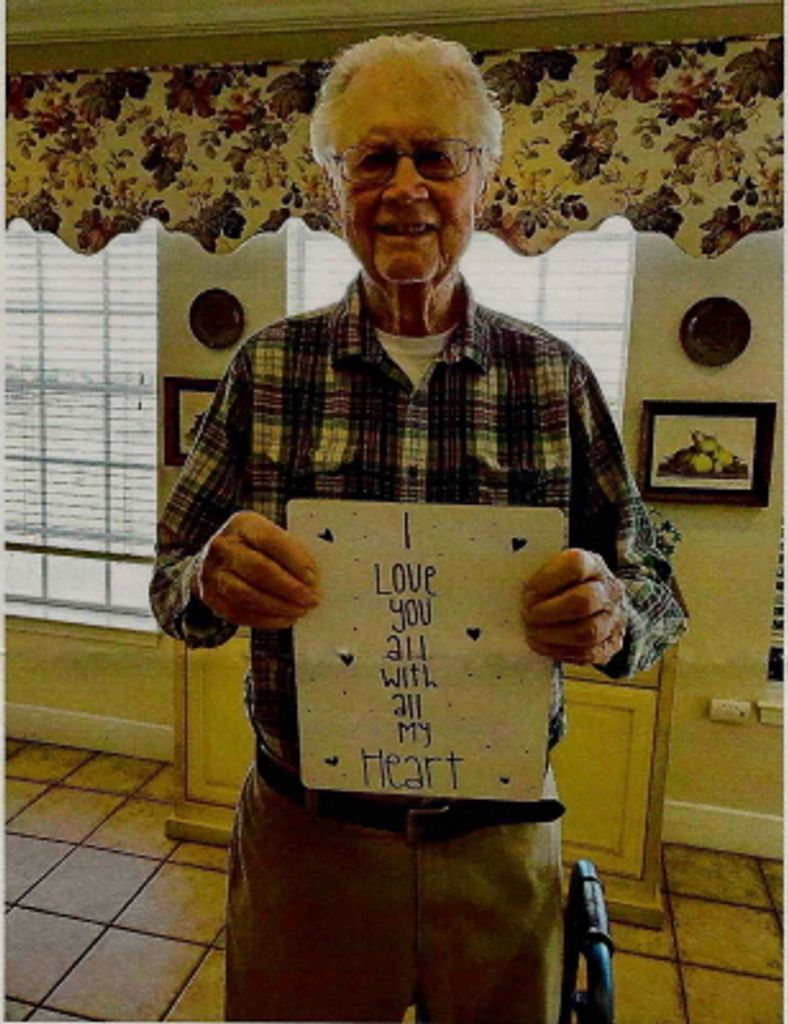 I
Love
you
all
with
all
my
Heart